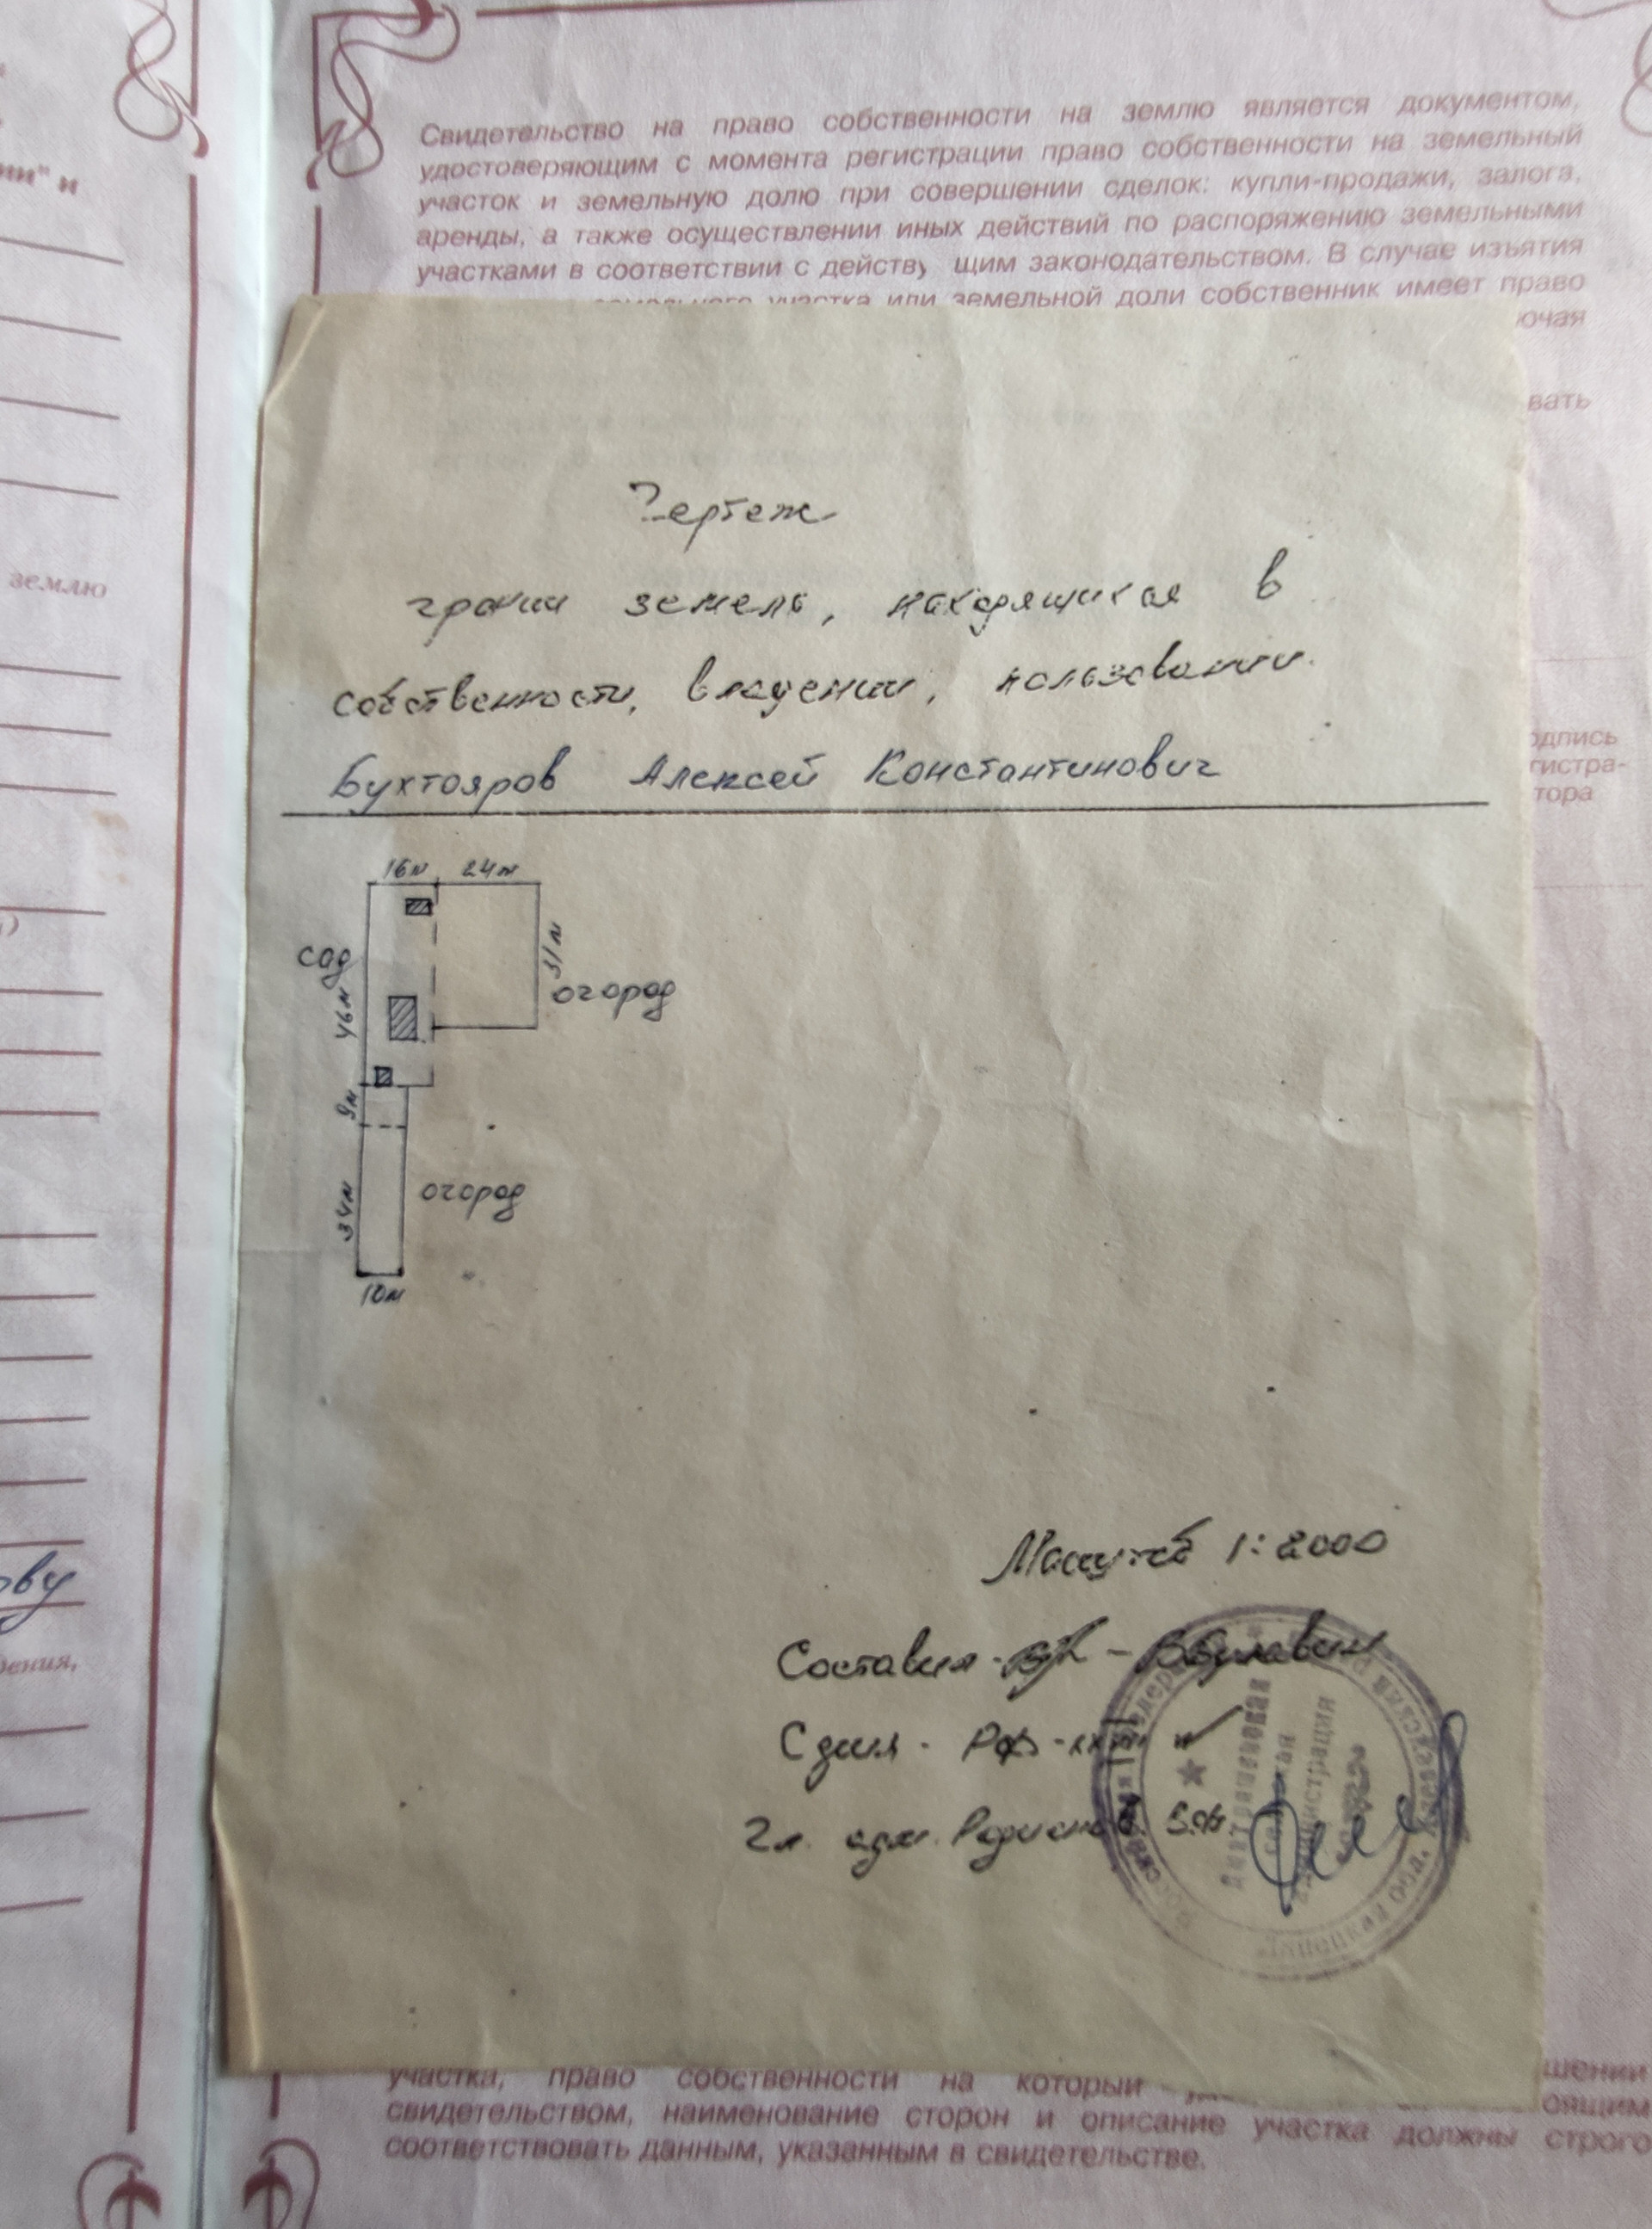 ии" и
землю
ову
дения,
Свидетельство на право собственности на землю является документом,
удостоверяющим с момента регистрации право собственности на земельный
участок и земельную долю при совершении сделок: купли-продажи, залога,
аренды, а также осуществлении иных действий по распоряжению земельными
участками в соответствии с действ щим законодательством. В случае изъятия
земельного участка или земельной доли собственник имеет право
ючая
вать
одпись
гистра-
тора
Чертеж
границ земель, находящихся в
собственности, владении, пользовании
Бухтояров Алексей Константинович
16м 24м
сад
31м
46м
огород
9м
34м
огород
10м
Масштаб 1:2000
Составил - В. Булавин
Гл. адм. Родионов
администрация
Липецкая обл.
шении
участка, право собственности на который
оящим
свидетельством, наименование сторон и описание участка должны строго
соответствовать данным, указанным в свидетельстве.